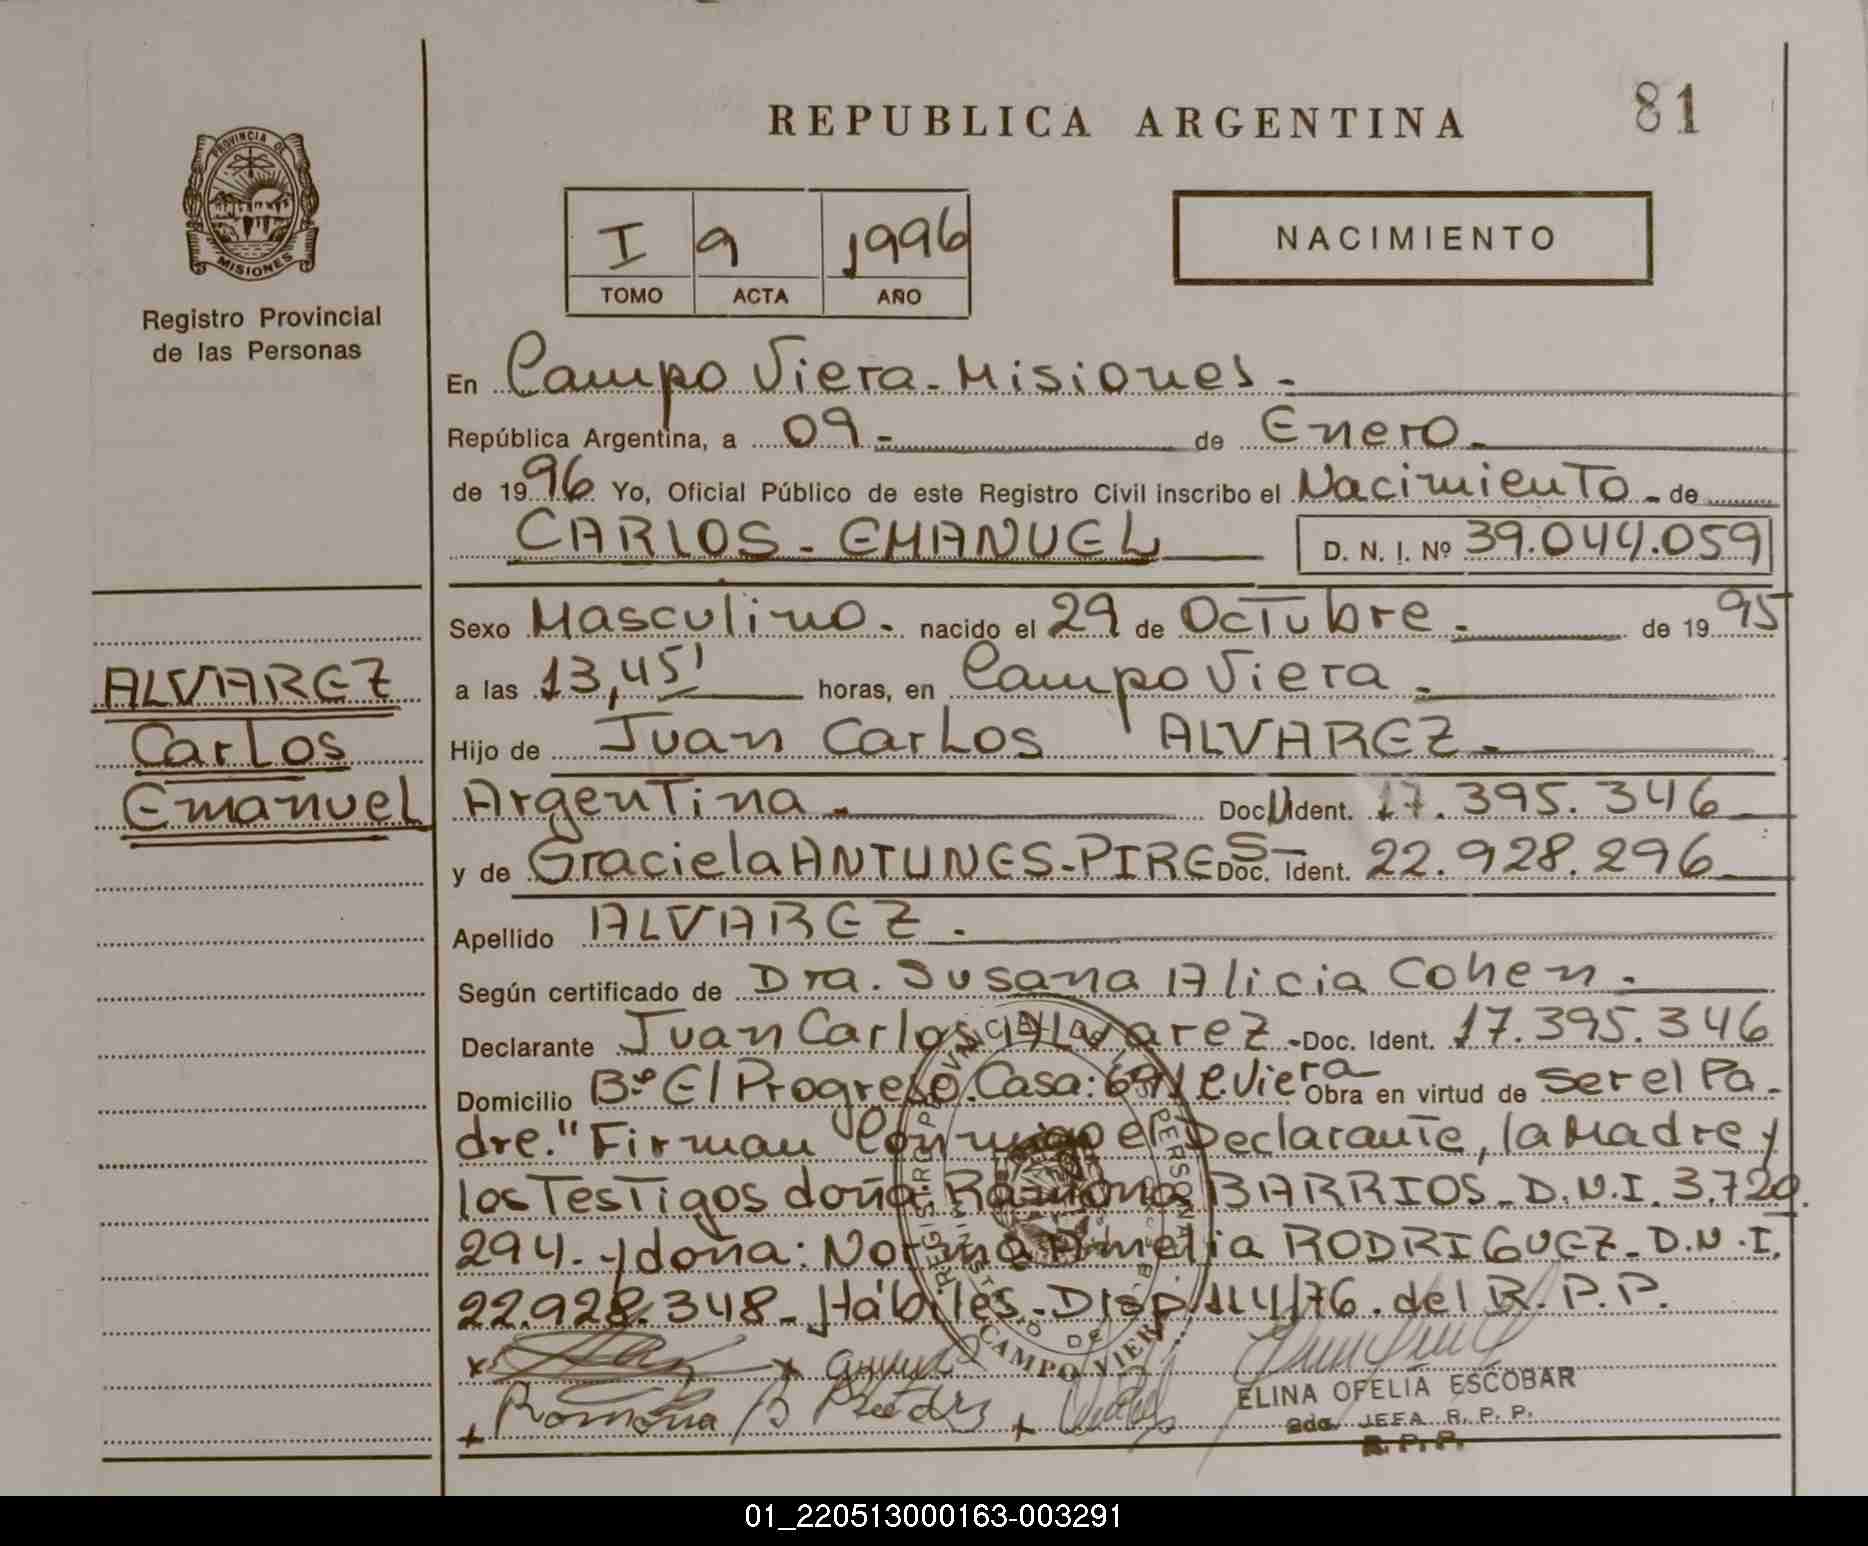 REPUBLICA ARGENTINA
81
PROVINCIA DE
MISIONES
Registro Provincial
de las Personas
I 9 1996
TOMO ACTA AÑO
NACIMIENTO
En Campo Viera - Misiones -
República Argentina, a 09 - de Enero -
de 1996 Yo, Oficial Público de este Registro Civil inscribo el Nacimiento - de
CARLOS - EMANUEL D. N. I. Nº 39.044.059
Sexo Masculino - nacido el 29 de Octubre - de 1995
a las 13,45' horas, en Campo Viera -
Hijo de Juan Carlos ALVAREZ -
Argentina - Doc. U Ident. 17.395.346
y de Graciela ANTUNES-PIRES - Doc. Ident. 22.928.296
Apellido ALVAREZ -
Según certificado de Dra. Susana Alicia Cohen -
Declarante Juan Carlos Alvarez - Doc. Ident. 17.395.346
Domicilio Bº El Progreso. Casa: C. Viera Obra en virtud de ser el Pa-
dre." Firman Conmigo el Declarante, la Madre y
los Testigos doña: Ramona BARRIOS - D.N.I. 3.720.
294 - y doña: Norma Amelia RODRIGUEZ - D.N.I.
22.928.348 - Hábiles - Disp. 114/76. del R.P.P.
ALVAREZ
Carlos
Emanuel
REGISTRO PROVINCIAL DE LAS PERSONAS
CAMPO VIERA
ELINA OFELIA ESCOBAR
2da. JEFA R. P. P.
R. P. P.
01_220513000163-003291